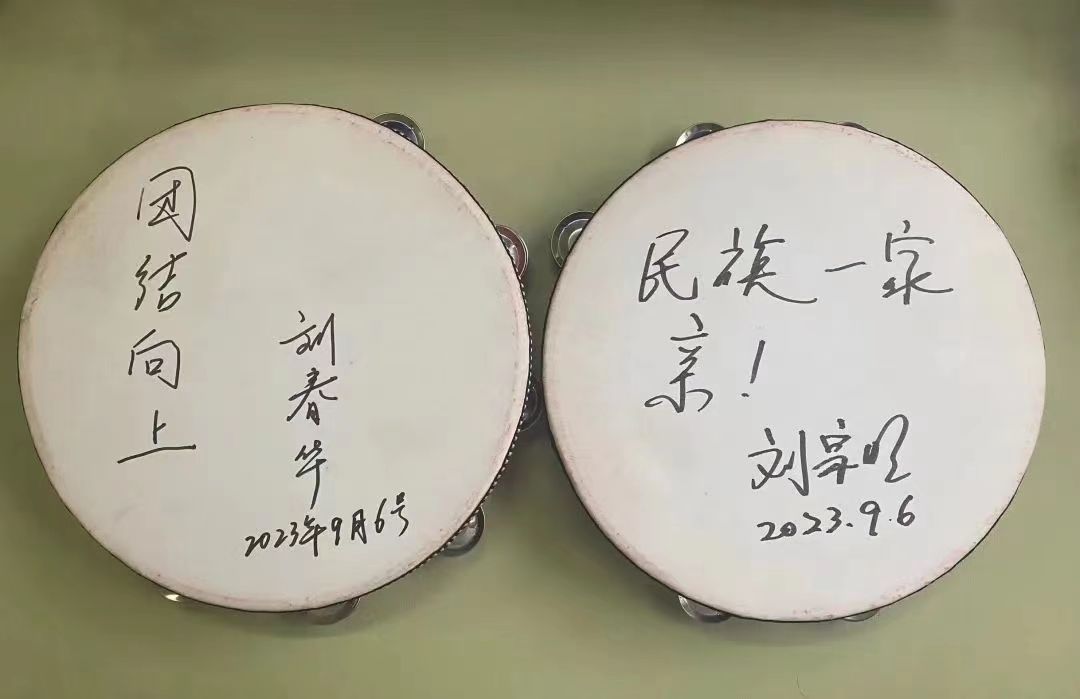 团结向上
刘春华
2023年9月6号
民族一家
亲!
刘宗明
2023.9.6